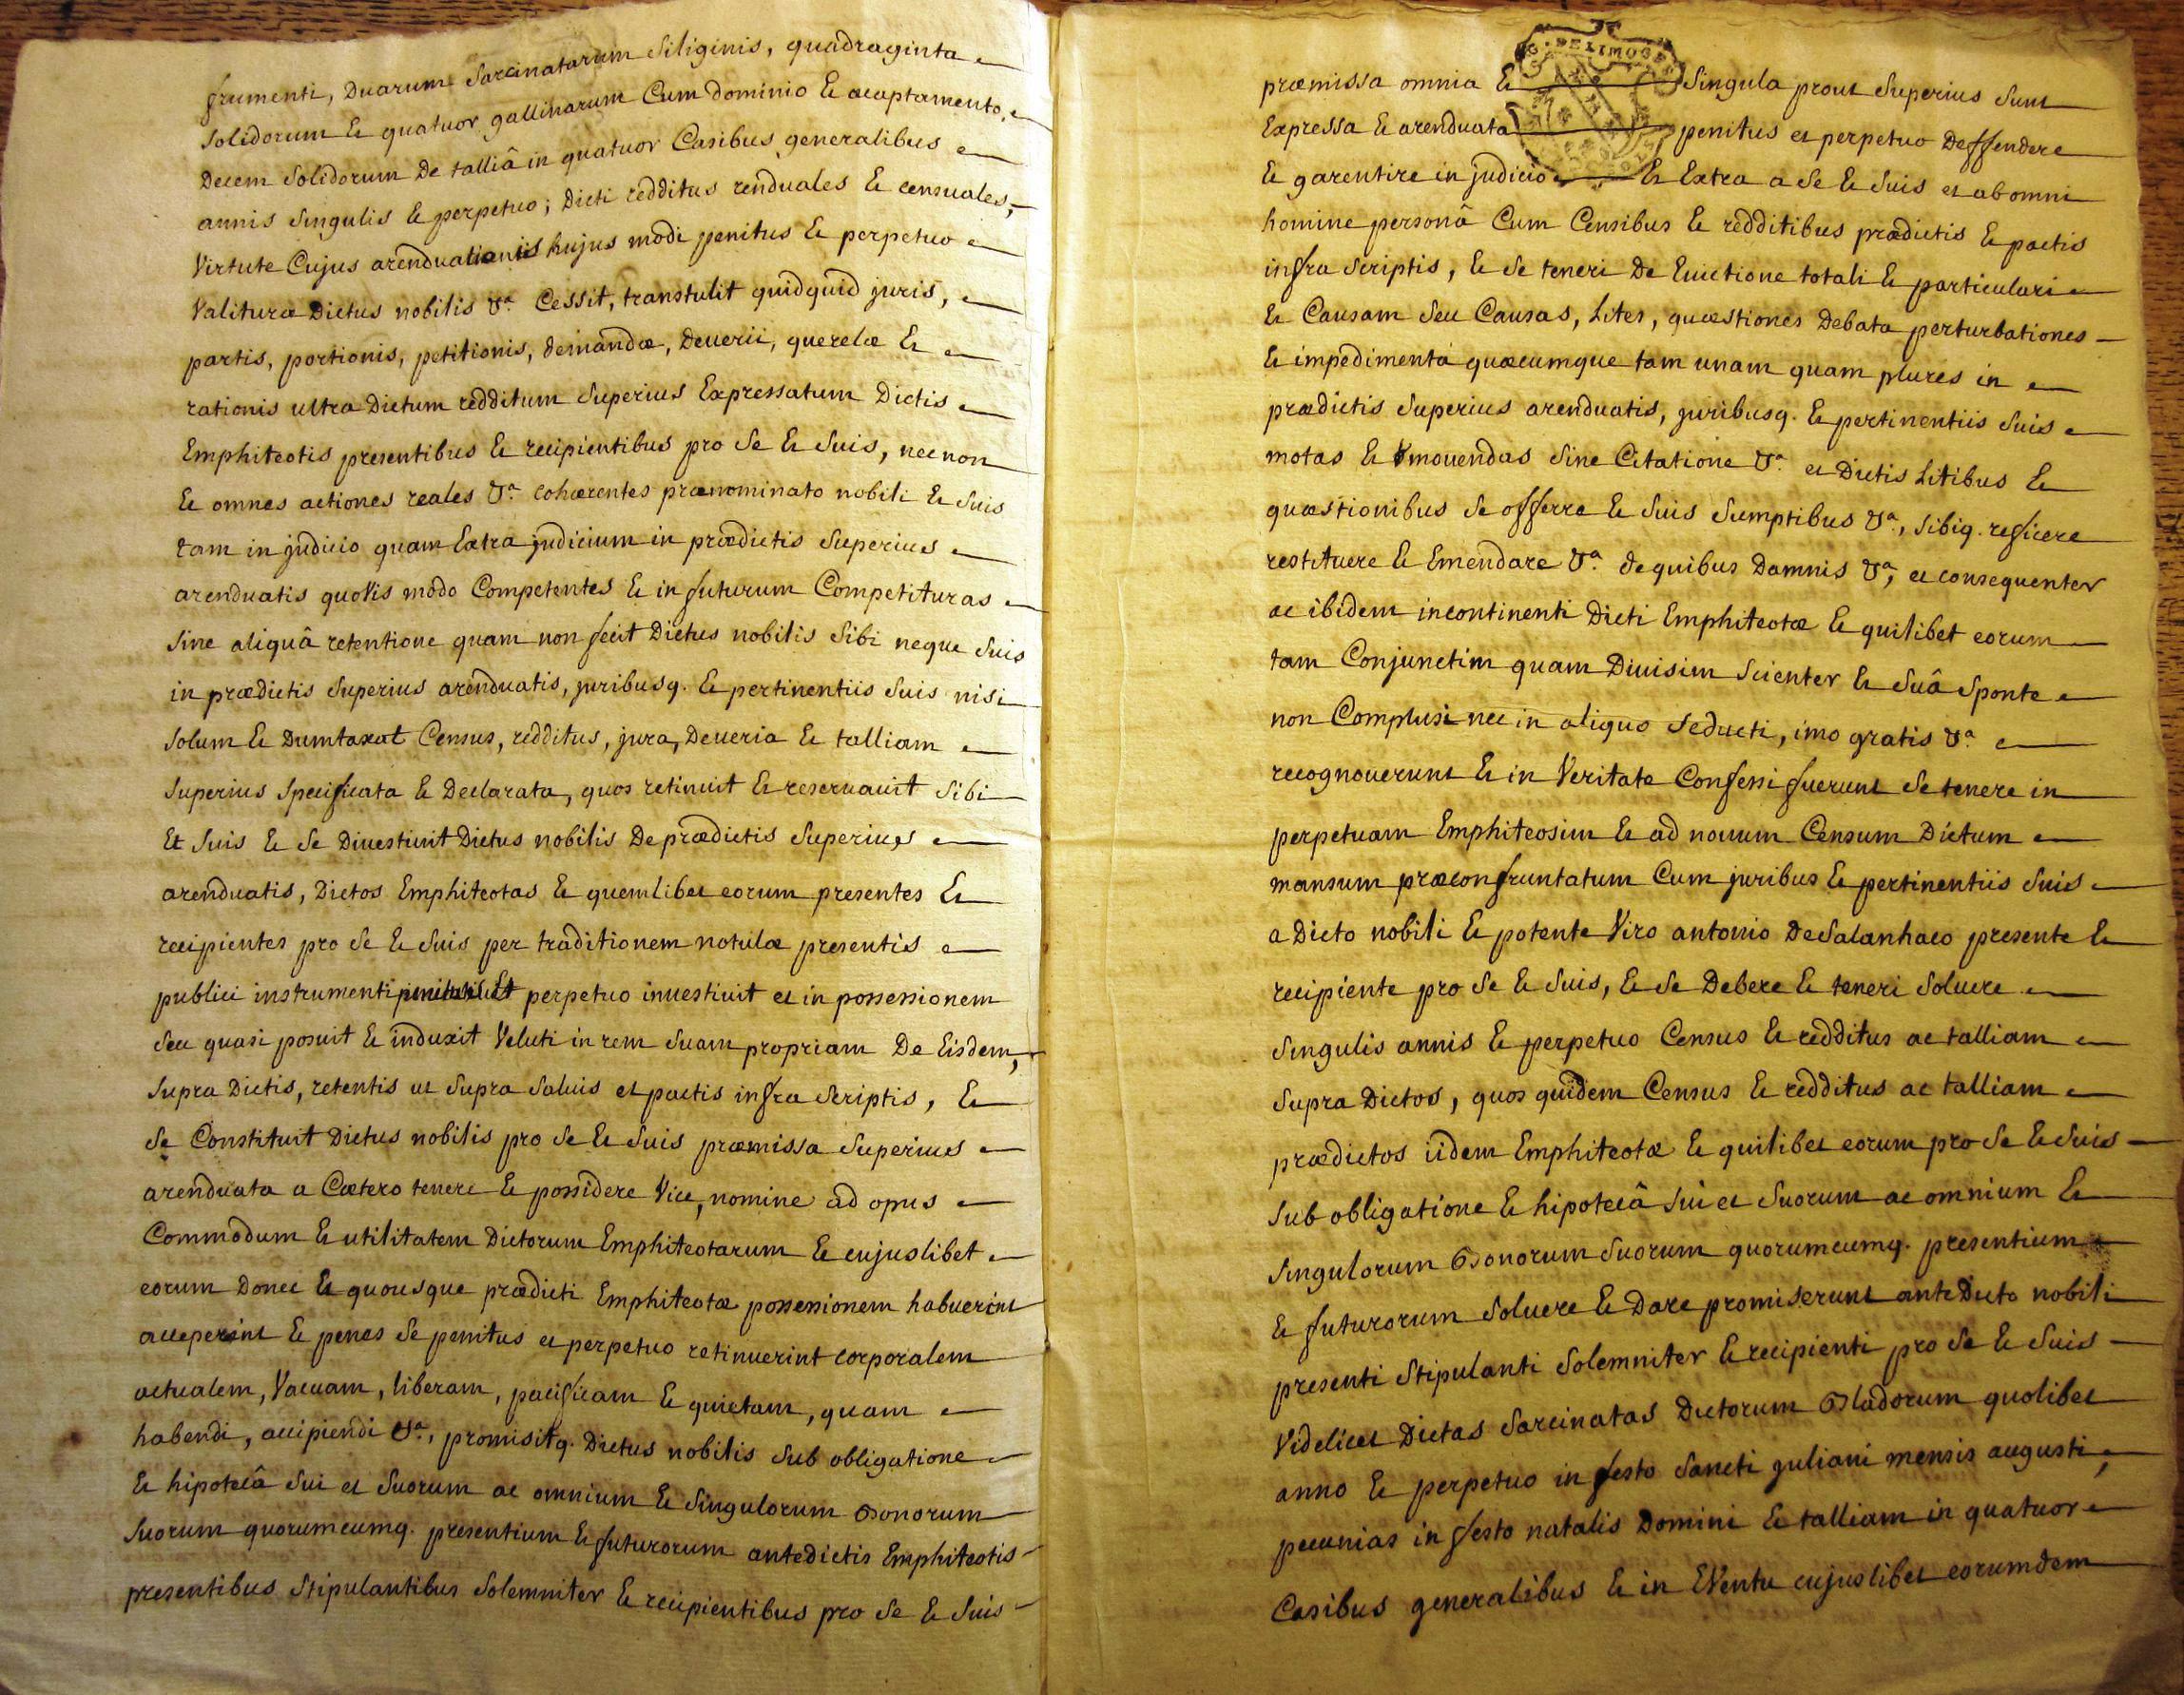 frumenti, Duarum Sarcinatarum Siliginis, quadraginta
Solidorum & quatuor gallinarum Cum dominio & acaptamento,
Decem Solidorum De talliâ in quatuor Casibus generalibus
annis Singulis & perpetuo; Dicti redditus renduales & censuales,
Virtute Cujus arenduationis hujus modi penitus & perpetuo
Valituræ Dictus nobilis &a. Cessit, transtulit quidquid juris,
partis, portionis, petitionis, demandæ, Deverii, querelæ &
rationis ultra Dictum redditum Superius Expressatum Dictis
Emphiteotis presentibus & recipientibus pro Se & Suis, necnon
& omnes actiones reales &a. cohærentes prænominato nobili & Suis
tam in judicio quam Extra judicium in prædictis Superius
arenduatis quoVis modo Competentes & in futurum Competituras
Sine aliquâ retentione quam non fecit Dictus nobilis Sibi neque Suis
in prædictis Superius arenduatis, juribusq. & pertinentiis Suis nisi
Solum & Dumtaxat Census, redditus, jura, Deveria & talliam
Superius Specificata & Declarata, quos retinuit & reservavit Sibi
Et Suis & Se Divestivit Dictus nobilis De prædictis Superius
arenduatis, Dictos Emphiteotas & quemlibet eorum presentes &
recipientes pro Se & Suis per traditionem notulæ presentis
publici instrumenti penitus Et perpetuo investivit et in possessionem
Seu quasi posuit & induxit Veluti in rem Suam propriam De Eisdem,
Supra Dictis, retentis ut Supra Salvis et pactis infra Scriptis, &
Se Constituit Dictus nobilis pro Se & Suis præmissa Superius
arenduata a Cætero tenere & possidere Vice, nomine ad opus
Commodum & utilitatem Dictorum Emphiteotarum & cujuslibet
eorum Donec & quousque prædicti Emphiteotæ possessionem habuerint
acceperint & penes Se penitus et perpetuo retinuerint corporalem
actualem, Vacuam, liberam, pacificam & quietam, quam
habendi, accipiendi &a., promisitq. Dictus nobilis Sub obligatione
& hipotecâ Sui et Suorum ac omnium & Singulorum Bonorum
Suorum quorumcumq. presentium & futurorum antedictis Emphiteotis
presentibus Stipulantibus Solemniter & recipientibus pro Se & Suis
DE LIMOGES
præmissa omnia & Singula prout Superius Sunt
Expressa & arenduata penitus et perpetuo Deffendere
& garentire in judicio & Extra a Se & Suis et ab omni
homine personâ Cum Censibus & redditibus prædictis & pactis
infra Scriptis, & Se teneri De Evictione totali & particulari
& Causam Seu Causas, Lites, quæstiones Debata perturbationes
& impedimenta quæcumque tam unam quam plures in
prædictis Superius arenduatis, juribusq. & pertinentiis Suis
motas & movendas Sine Citatione &a. et Dictis Litibus &
quæstionibus Se offerre & Suis Sumptibus &a, Sibiq. reficere
restituere & Emendare &a. de quibus Damnis &a, et consequenter
ac ibidem incontinenti Dicti Emphiteotæ & quilibet eorum
tam Conjunctim quam Divisim Scienter & Suâ Sponte
non Complusi nec in aliquo Seducti, imo gratis &a.
recognoverunt & in Veritate Confessi fuerunt Se tenere in
perpetuam Emphiteosim & ad novum Censum Dictum
mansum præconfruntatum Cum juribus & pertinentiis Suis
a Dicto nobili & potente Viro antonio DeSalanhaco presente &
recipiente pro Se & Suis, & Se Debere & teneri Solvere
Singulis annis & perpetuo Census & redditus ac talliam
Supra Dictos, quos quidem Census & redditus ac talliam
prædictos iidem Emphiteotæ & quilibet eorum pro Se & Suis
Sub obligatione & hipotecâ Sui et Suorum ac omnium &
Singulorum Bonorum Suorum quorumcumq. presentium
& futurorum Solvere & Dare promiserunt ante Dicto nobili
presenti Stipulanti Solemniter & recipienti pro Se & Suis
Videlicet Dictas Sarcinatas Dictorum Bladorum quolibet
anno & perpetuo in festo Sancti juliani mensis augusti,
pecunias in festo natalis Domini & talliam in quatuor
Casibus generalibus & in EVentu cujuslibet eorumdem